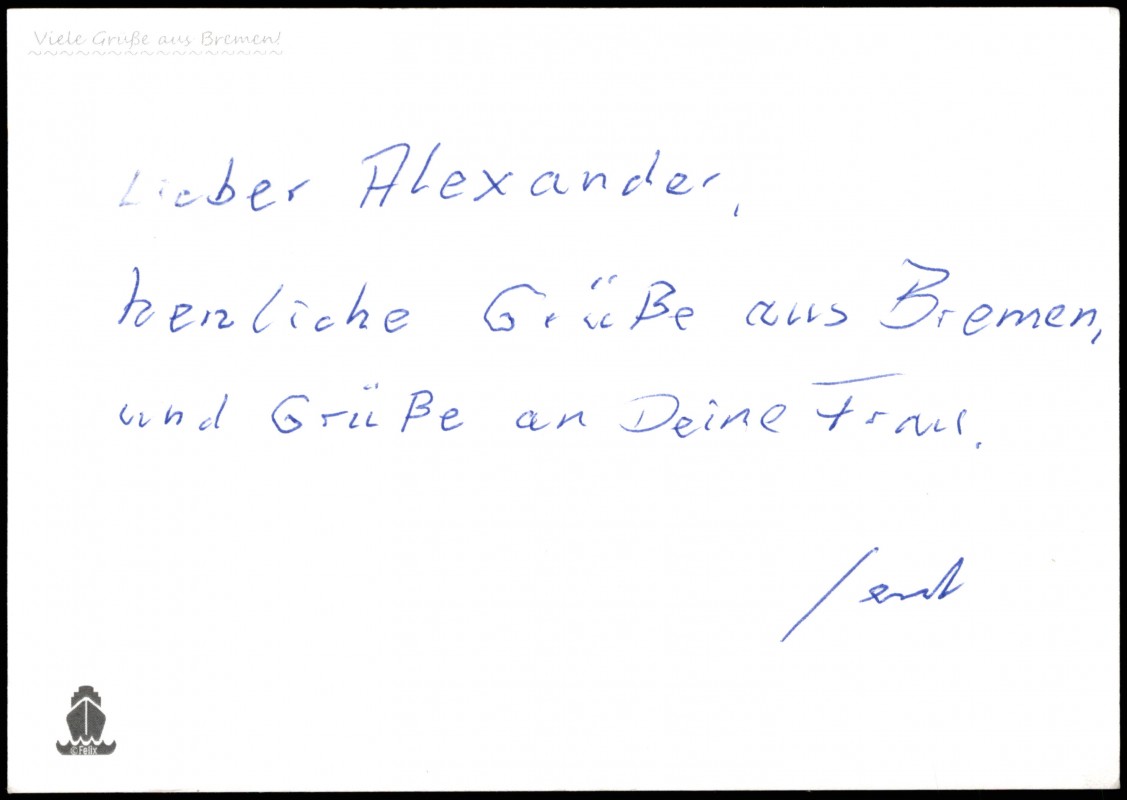 Viele Grüße aus Bremen!
Lieber Alexander,
herzliche Grüße aus Bremen,
und Grüße an Deine Frau.
©Felix